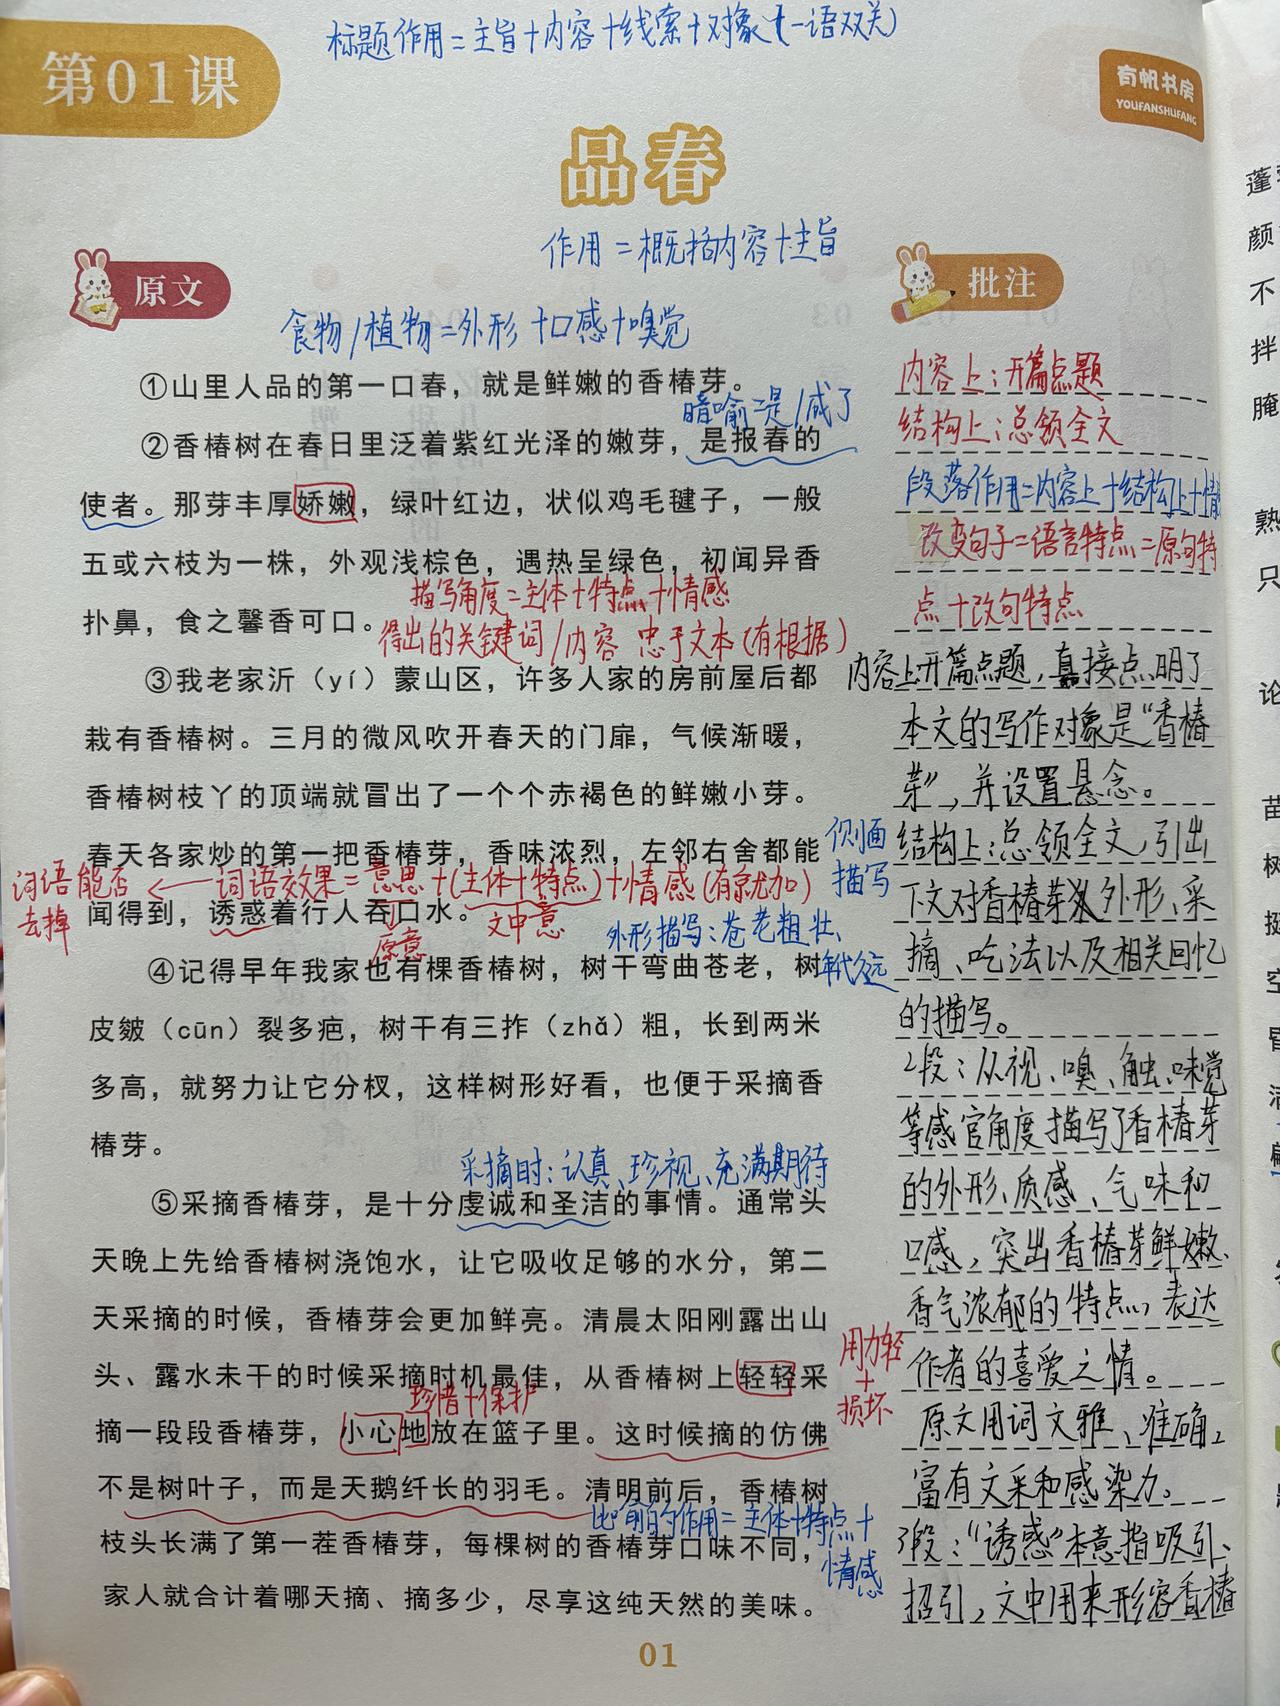 标题作用=主旨+内容+线索+对象(一语双关)
第01课
有帆书房
YOUFANSHUFANG
品春
作用=概括内容+主旨
原文
批注
食物/植物=外形+口感+嗅觉
①山里人品的第一口春，就是鲜嫩的香椿芽。
暗喻:是/成了
②香椿树在春日里泛着紫红光泽的嫩芽，是报春的
使者。那芽丰厚娇嫩，绿叶红边，状似鸡毛毽子，一般
五或六枝为一株，外观浅棕色，遇热呈绿色，初闻异香
描写角度=主体+特点+情感
扑鼻，食之馨香可口。
得出的关键词/内容 忠于文本(有根据)
③我老家沂（yí）蒙山区，许多人家的房前屋后都
栽有香椿树。三月的微风吹开春天的门扉，气候渐暖，
香椿树枝丫的顶端就冒出了一个个赤褐色的鲜嫩小芽。
春天各家炒的第一把香椿芽，香味浓烈，左邻右舍都能
侧面
描写
词语能否
去掉
←词语效果=意思+(主体+特点)+情感(有就加)
闻得到，诱惑着行人吞口水。
原意
文中意
外形描写:苍老粗壮、
年代久远
④记得早年我家也有棵香椿树，树干弯曲苍老，树
皮皴（cūn）裂多疤，树干有三拃（zhǎ）粗，长到两米
多高，就努力让它分杈，这样树形好看，也便于采摘香
椿芽。
采摘时:认真、珍视、充满期待
⑤采摘香椿芽，是十分虔诚和圣洁的事情。通常头
天晚上先给香椿树浇饱水，让它吸收足够的水分，第二
天采摘的时候，香椿芽会更加鲜亮。清晨太阳刚露出山
头、露水未干的时候采摘时机最佳，从香椿树上轻轻采
用力轻
+
损坏
珍惜+保护
摘一段段香椿芽，小心地放在篮子里。这时候摘的仿佛
不是树叶子，而是天鹅纤长的羽毛。清明前后，香椿树
比喻的作用=主体+特点+
情感
枝头长满了第一茬香椿芽，每棵树的香椿芽口味不同，
家人就合计着哪天摘、摘多少，尽享这纯天然的美味。
01
内容上:开篇点题
结构上:总领全文
段落作用=内容上+结构上+情
改变句子=语言特点=原句特
点+改句特点
内容上开篇点题，直接点明了
本文的写作对象是“香椿
芽”，并设置悬念。
结构上:总领全文，引出
下文对香椿芽外形、采
摘、吃法以及相关回忆
的描写。
2段:从视、嗅、触、味觉
等感官角度描写了香椿芽
的外形、质感、气味和
口感，突出香椿芽鲜嫩、
香气浓郁的特点，表达
作者的喜爱之情。
原文用词文雅、准确，
富有文采和感染力。
3段:“诱惑”本意指吸引、
招引，文中用来形容香椿
蓬
颜
不
拌
腌
熟
只
论
苗
树
挺
空